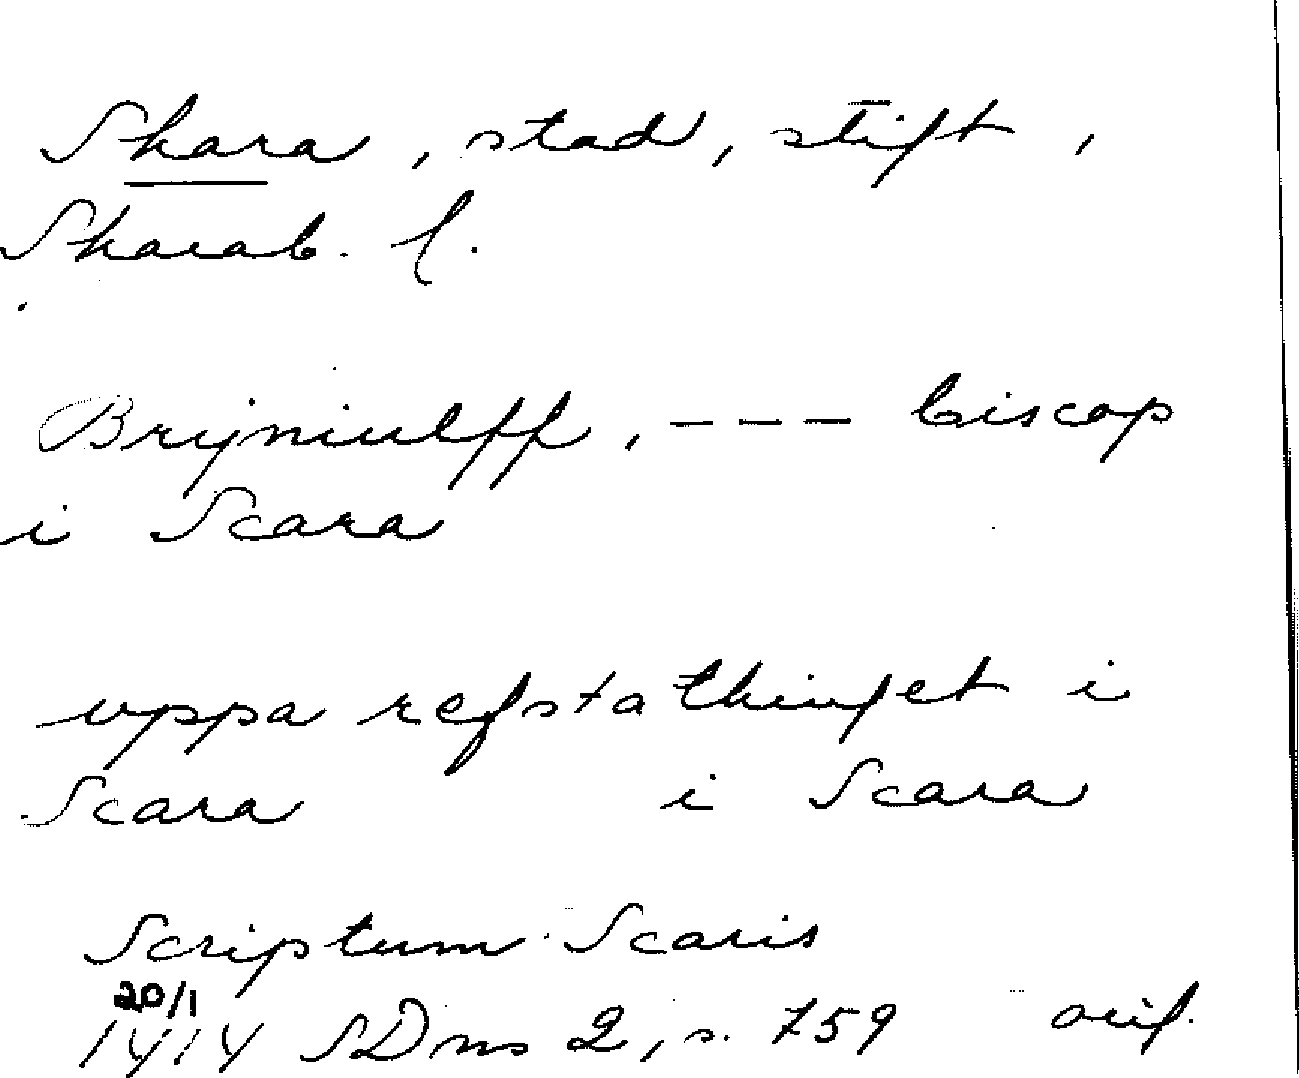 Skara, stad, stift,
Skarab. l.
Brijniulff, --- biscop
i Scara
uppa refsta thinget i
Scara i Scara
Scriptum Scaris
20/1
1414 SDns 2, s. 759 orig.